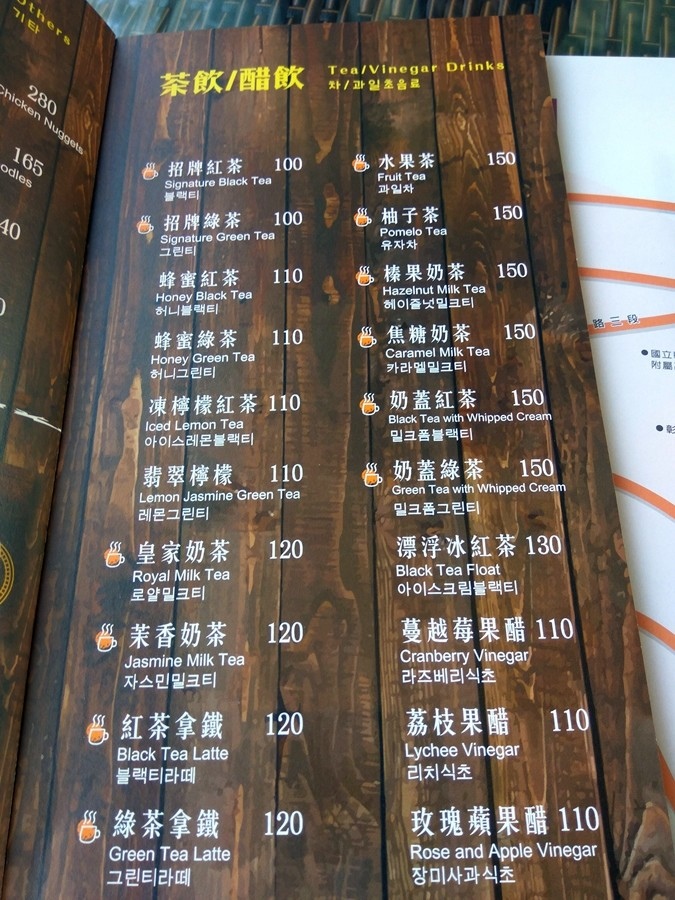 thers
기타
280
Chicken Nuggets
165
40
茶飲/醋飲
Tea/Vinegar Drinks
차/과일초음료
招牌紅茶 100
Signature Black Tea
블랙티
招牌綠茶 100
Signature Green Tea
그린티
蜂蜜紅茶 110
Honey Black Tea
허니블랙티
蜂蜜綠茶 110
Honey Green Tea
허니그린티
凍檸檬紅茶 110
Iced Lemon Tea
아이스레몬블랙티
翡翠檸檬 110
Lemon Jasmine Green Tea
레몬그린티
皇家奶茶 120
Royal Milk Tea
로얄밀크티
茉香奶茶 120
Jasmine Milk Tea
자스민밀크티
紅茶拿鐵 120
Black Tea Latte
블랙티라떼
綠茶拿鐵 120
Green Tea Latte
그린티라떼
水果茶 150
Fruit Tea
과일차
柚子茶 150
Pomelo Tea
유자차
榛果奶茶 150
Hazelnut Milk Tea
헤이즐넛밀크티
焦糖奶茶 150
Caramel Milk Tea
카라멜밀크티
奶蓋紅茶 150
Black Tea with Whipped Cream
밀크폼블랙티
奶蓋綠茶 150
Green Tea with Whipped Cream
밀크폼그린티
漂浮冰紅茶 130
Black Tea Float
아이스크림블랙티
蔓越莓果醋 110
Cranberry Vinegar
라즈베리식초
荔枝果醋 110
Lychee Vinegar
리치식초
玫瑰蘋果醋 110
Rose and Apple Vinegar
장미사과식초
路三段
國立
附屬
彰